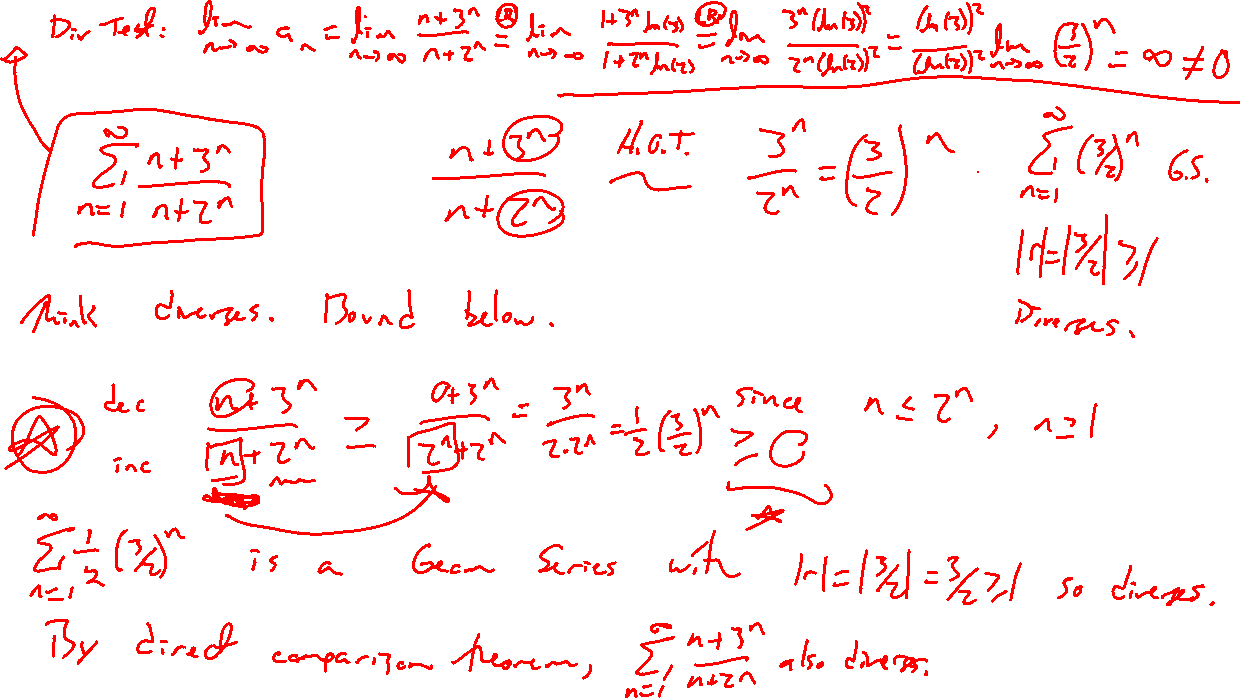 Div Test: lim n→∞ a_n = lim n→∞ (n+3^n)/(n+2^n) =(R) lim n→∞ (1+3^n ln(3))/(1+2^n ln(2)) =(R) lim n→∞ (3^n (ln(3))^2)/(2^n (ln(2))^2) = (ln(3))^2/(ln(2))^2 lim n→∞ (3/2)^n = ∞ ≠ 0
∑_{n=1}^∞ (n+3^n)/(n+2^n) (n+3^n)/(n+2^n) H.O.T. 3^n/2^n = (3/2)^n ∑_{n=1}^∞ (3/2)^n G.S.
|r|=|3/2| ≥ 1
Diverges.
think diverges. Bound below.
dec inc (n+3^n)/(n+2^n) ≥ (0+3^n)/(2^n+2^n) = 3^n/(2·2^n) = 1/2 (3/2)^n ≥ 0 since n ≤ 2^n, n ≥ 1
∑_{n=1}^∞ 1/2 (3/2)^n is a Geom Series with |r| = |3/2| = 3/2 ≥ 1 so diverges.
By direct comparison theorem, ∑_{n=1}^∞ (n+3^n)/(n+2^n) also diverges.